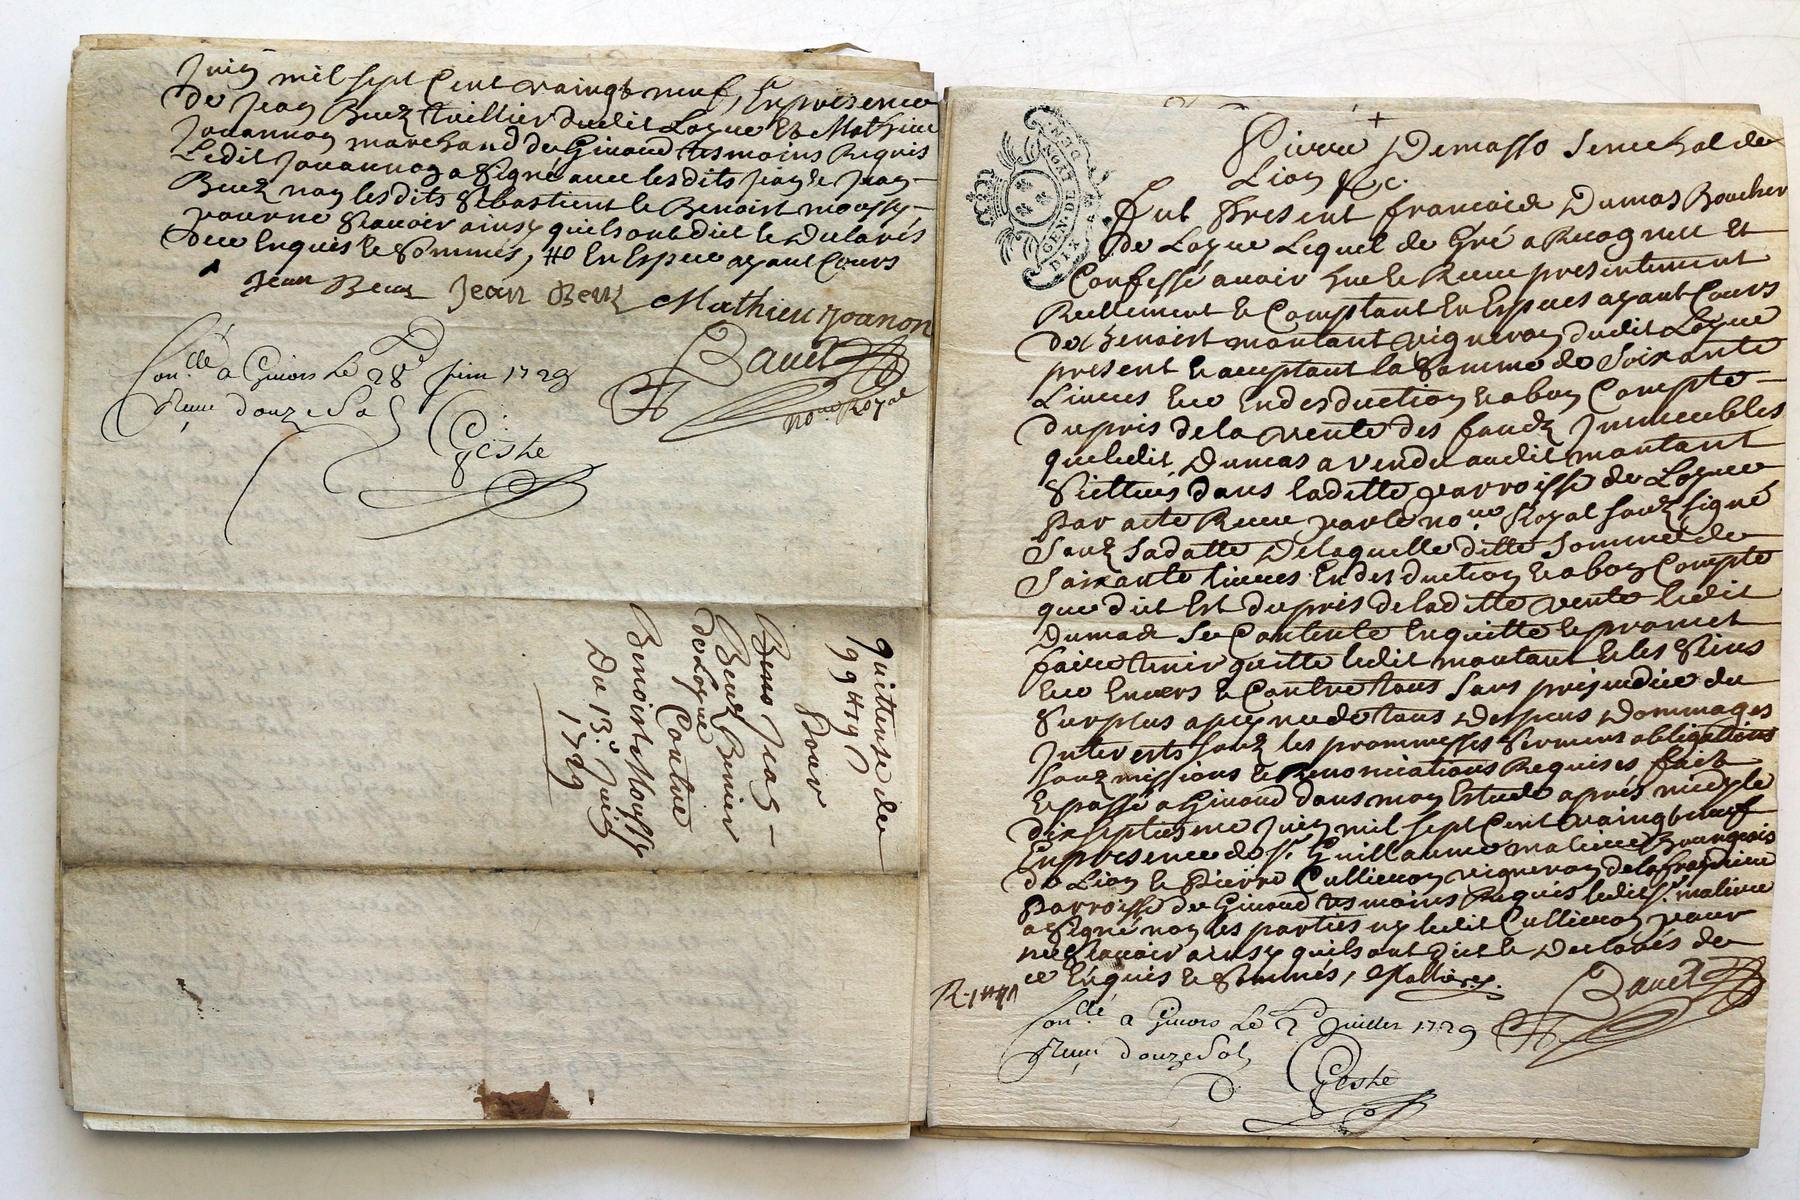 Juin mil sept Cent vaingt neuf, En presence
de Jean Buez tuillier dudit Loyre Et Mathieu
Jouannon marchand de Givord tesmoins Requis
Ledit Jouannon a Signé avec lesdits Jean & Jean
Buez non lesdits Sebastient & Benoist moussy
pour ne Scavoir ainsy quils ont dit & Declarés
de ce Enquis & Sommés, En Espece ayant Cours
Jean Beuz Jean Beuz Mathieu Joanon
Bauet
no.re Royal
Con.llé a Givors Le 28e Juin 1729
Receu douze Sols
Geshe
quittense de
199 H 15 s
Pour
Beno Jean
Beuez Bernier
de Loyre
Contre
Benoist Moussy
Du 13.e Juin
1729
Pierre Demasso Senechal de
Lion &c.
GEN. DE
DIX DEN.
Fut Present francois Dumas Boucher
de Loyre Lequel de Gré a Recognu Et
Confessé avoir heu & Receu presentement
Reellement & Comptant En Especes ayant Cours
de Benoist moutant vigneron dudit Loyre
present & acceptant la Somme de Soixante
Livres & ce En desduction & a bon Compte
du pris de la vente des fondz Immeubles
que ledit Dumas a vendu audit moutant
Scittués dans laditte parroisse de Loyre
Par acte Receu par le no.re Royal Souz signé
Souz sa datte De laquelle ditte Somme de
Soixante livres En desduction & a bon Compte
que dit Est du pris de laditte vente ledit
Dumas Se Contente En quitte & promet
faire tenir quitte ledit moutant & les Siens
& ce Envers & Contre tous Sans prejudice du
Surplus a peyne de tous Despens Dommages
Interests Souz les prommesses Serments obligations
Souzmissions & Renonciations Requises fait
& passé a Givord dans mon Estude après midy le
dixseptiesme Juin mil sept Cent vaingt neuf
En presence de Sr. Guillaume malivre Bourgeois
de Lion & Pierre Cullieron vigneron de la freydiere
Parroisse de Givord tesmoins Requis ledit Sr. malivre
a Signé non les parties ny ledit Cullieron pour
ne Scavoir ainsy quils ont dit & Declarés de
ce Enquis & Sommés,
Bauet
Con.llé a Givors Le 2e Juillet 1729
Receu douze Sols
Geshe